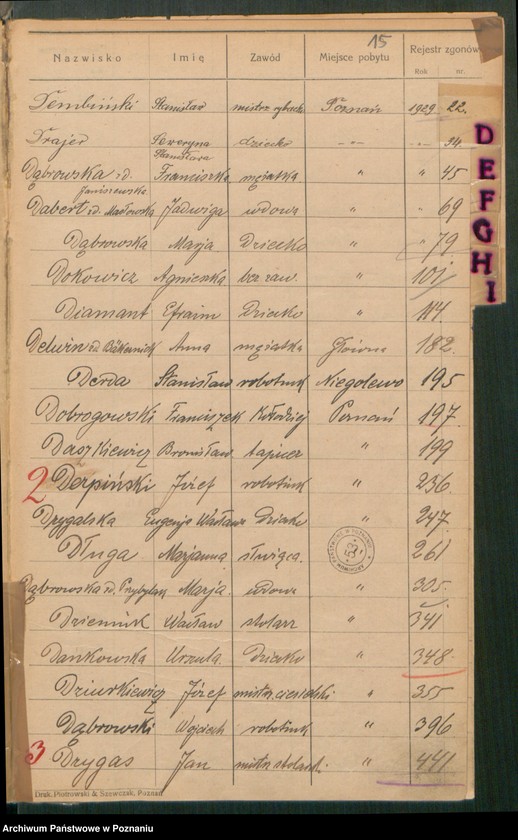 15
Nazwisko Imię Zawód Miejsce pobytu Rejestr zgonów
Rok nr.
Dembiński Stanisław mistrz ryback Poznań 1929 22.
Drajer Seweryna dziecko -"- -"- 34
Stanisława
Dąbrowska zd. Franciszka mężatka " " 45
Janiszewska
Dabert zd. Jadwiga wdowa " " 69
Dąbrowska Marja Dziecko " " 79
Dokowicz Agnieszka bez zaw. " 101
Diamant Efraim Dziecko " 114.
Delwin zd. Anna mężatka Główna 182.
Derda Stanisław robotnik Niegolewo 195
Dobrogowski Franciszek Kołodziej Poznań 197.
Daszkiewicz Bronisław tapicer " 199
2 Derpiński Józef robotnik " 236
Drygalska Eugenja Wacława dziecko " 247.
Długa Marjanna służąca. " 261
Dąbrowska zd. Przybylak Marja. wdowa " 305.
Dziennik Wacław stolarz " 341
Dankowska Urszula Dziecko " 348.
Dziurkiewicz Józef mistrz ciesielski " 355
Dąbrowski Wojciech robotnik " 396
3 Drygas Jan mistrz stolarsk. " 441
Druk. Piotrowski & Szewczak, Poznań
D
E
F
G
H
I
Archiwum Państwowe w Poznaniu